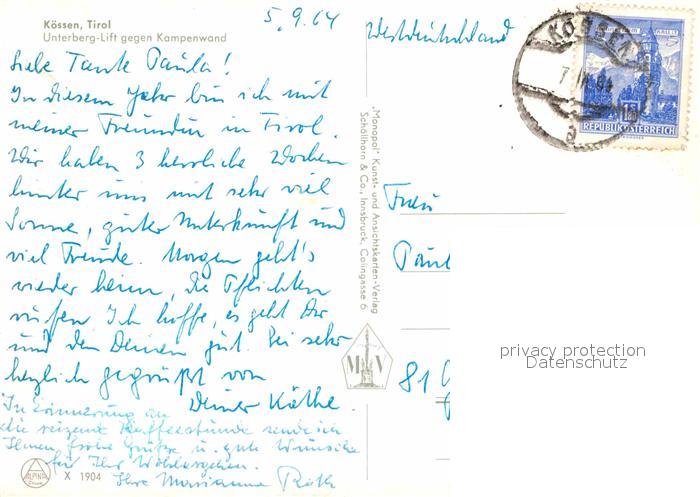 Kössen, Tirol
Unterberg-Lift gegen Kampenwand
5.9.64
Westdeutschland
KÖSSEN
REPUBLIK ÖSTERREICH
Liebe Tante Paula!
In diesem Jahr bin ich mit
meiner Freundin in Tirol.
Wir haben 3 herrliche Wochen
hinter uns mit sehr viel
Sonne, guter Unterkunft und
viel Freude. Morgen geht's
wieder heim, die Pflichten
rufen. Ich hoffe, es geht Dir
und den Deinen gut. Sei sehr
herzlich gegrüßt von
Deiner Käthe.
In Erinnerung an
die reizende Kaffeestunde sende ich
Ihnen frohe Grüße u. gute Wünsche
für Ihr Wohlergehen.
Ihre Marianne
„Monopol" Kunst- und Ansichtskarten-Verlag
Schöllhorn & Co., Innsbruck, Colingasse 6
M V
Frau
81
privacy protection
Datenschutz
ALPINA
X 1904